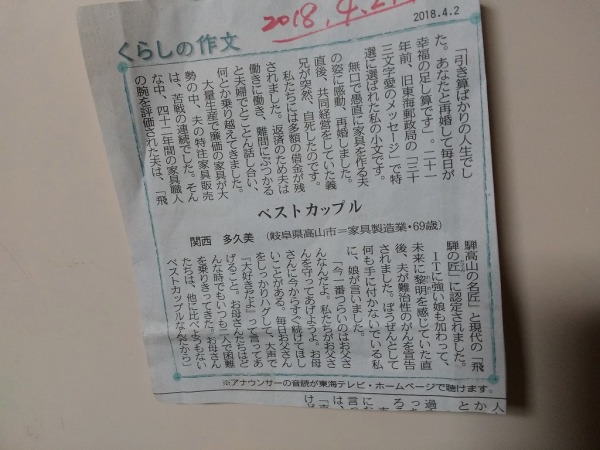 2018.4.2
2018.4.2
くらしの作文
「引き算ばかりの人生でし
た。あなたと再婚して毎日が
幸福の足し算です」。二十一
年前、旧東海郵政局の「三十
三文字愛のメッセージ」で特
選に選ばれた私の小文です。
無口で愚直に家具を作る夫
の姿に感動、再婚しました。
直後、共同経営をしていた義
兄が突然、自死したのです。
私たちには多額の借金が残
されました。返済のため夫は
働きに働き、難問にぶつかる
と夫婦でとことん話し合い、
何とか乗り越えてきました。
大量生産で廉価の家具が大
勢の中、夫の特注家具販売
は、苦戦の連続でした。そん
な中、四十二年間の家具職人
の腕を評価された夫は、「飛
ベストカップル
関西 多久美 (岐阜県高山市=家具製造業・69歳)
騨高山の名匠」と現代の「飛
騨の匠」に認定されました。
ITに強い娘も加わって、
未来に黎明を感じていた直
後、夫が難治性のがんを宣告
されました。ぼうぜんとして
何も手に付かないでいる私
に、娘が言いました。
「今一番つらいのはお父さ
んなんだよ。私たちがお父さ
んを守ってあげようよ。お母
さんに今からすぐ続けてほし
いことがある。毎日お父さん
をしっかりハグして、大声で
『大好きだよ』って言ってあ
げること。お母さんたちはど
んな時でもいつも二人で困難
を乗りきってきた。お母さん
たちは、他に比べようもない
ベストカップルなんだから」
※アナウンサーの音読が東海テレビ・ホームページで聴けます。